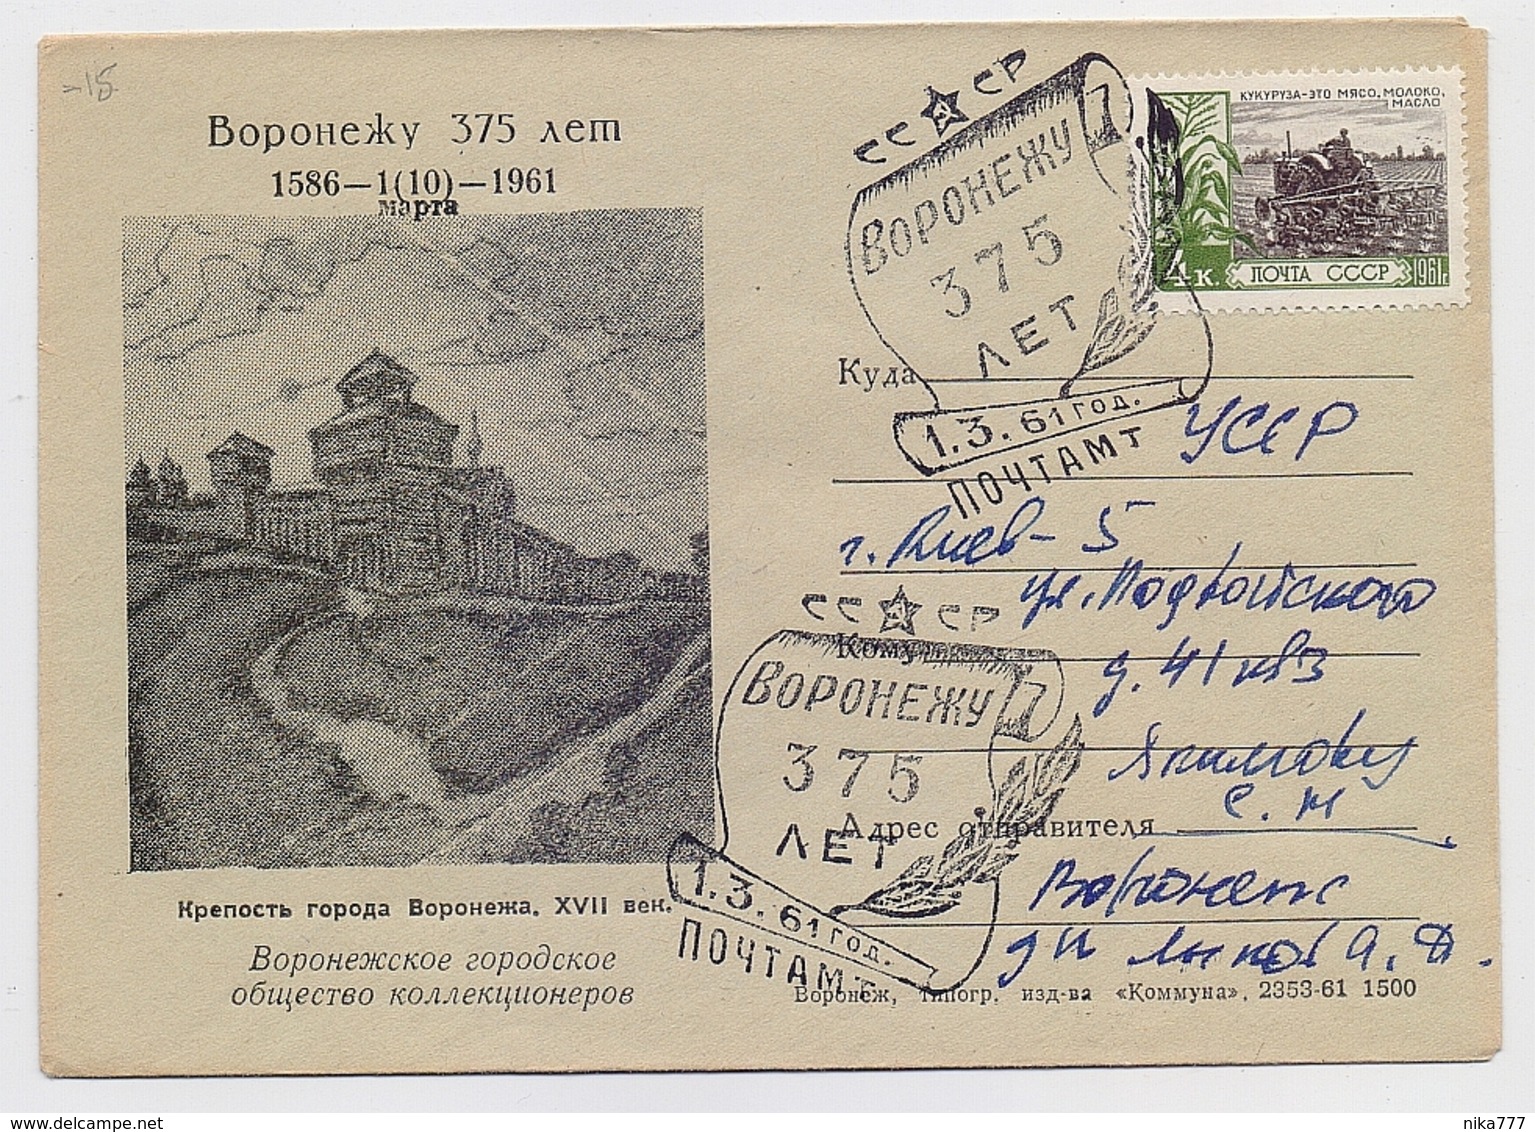 -15
Воронежу 375 лет
1586—1(10)—1961
марта
Крепость города Воронежа. XVII век.
Воронежское городское
общество коллекционеров
СССР
ВОРОНЕЖУ
375
ЛЕТ
1.3.61 ГОД.
ПОЧТАМТ
КУКУРУЗА-ЭТО МЯСО, МОЛОКО,
МАСЛО
4 к. ПОЧТА СССР 1961г.
Куда
УССР
г. Киев-5
ул. Подвойского
Кому
д. 41 кв 3
Якимову
С. М
Адрес отправителя
Воронеж
СССР
ВОРОНЕЖУ
375
ЛЕТ
1.3.61 ГОД.
ПОЧТАМТ
Воронеж, типогр. изд-ва «Коммуна», 2353-61 1500
delcampe.net
nika777